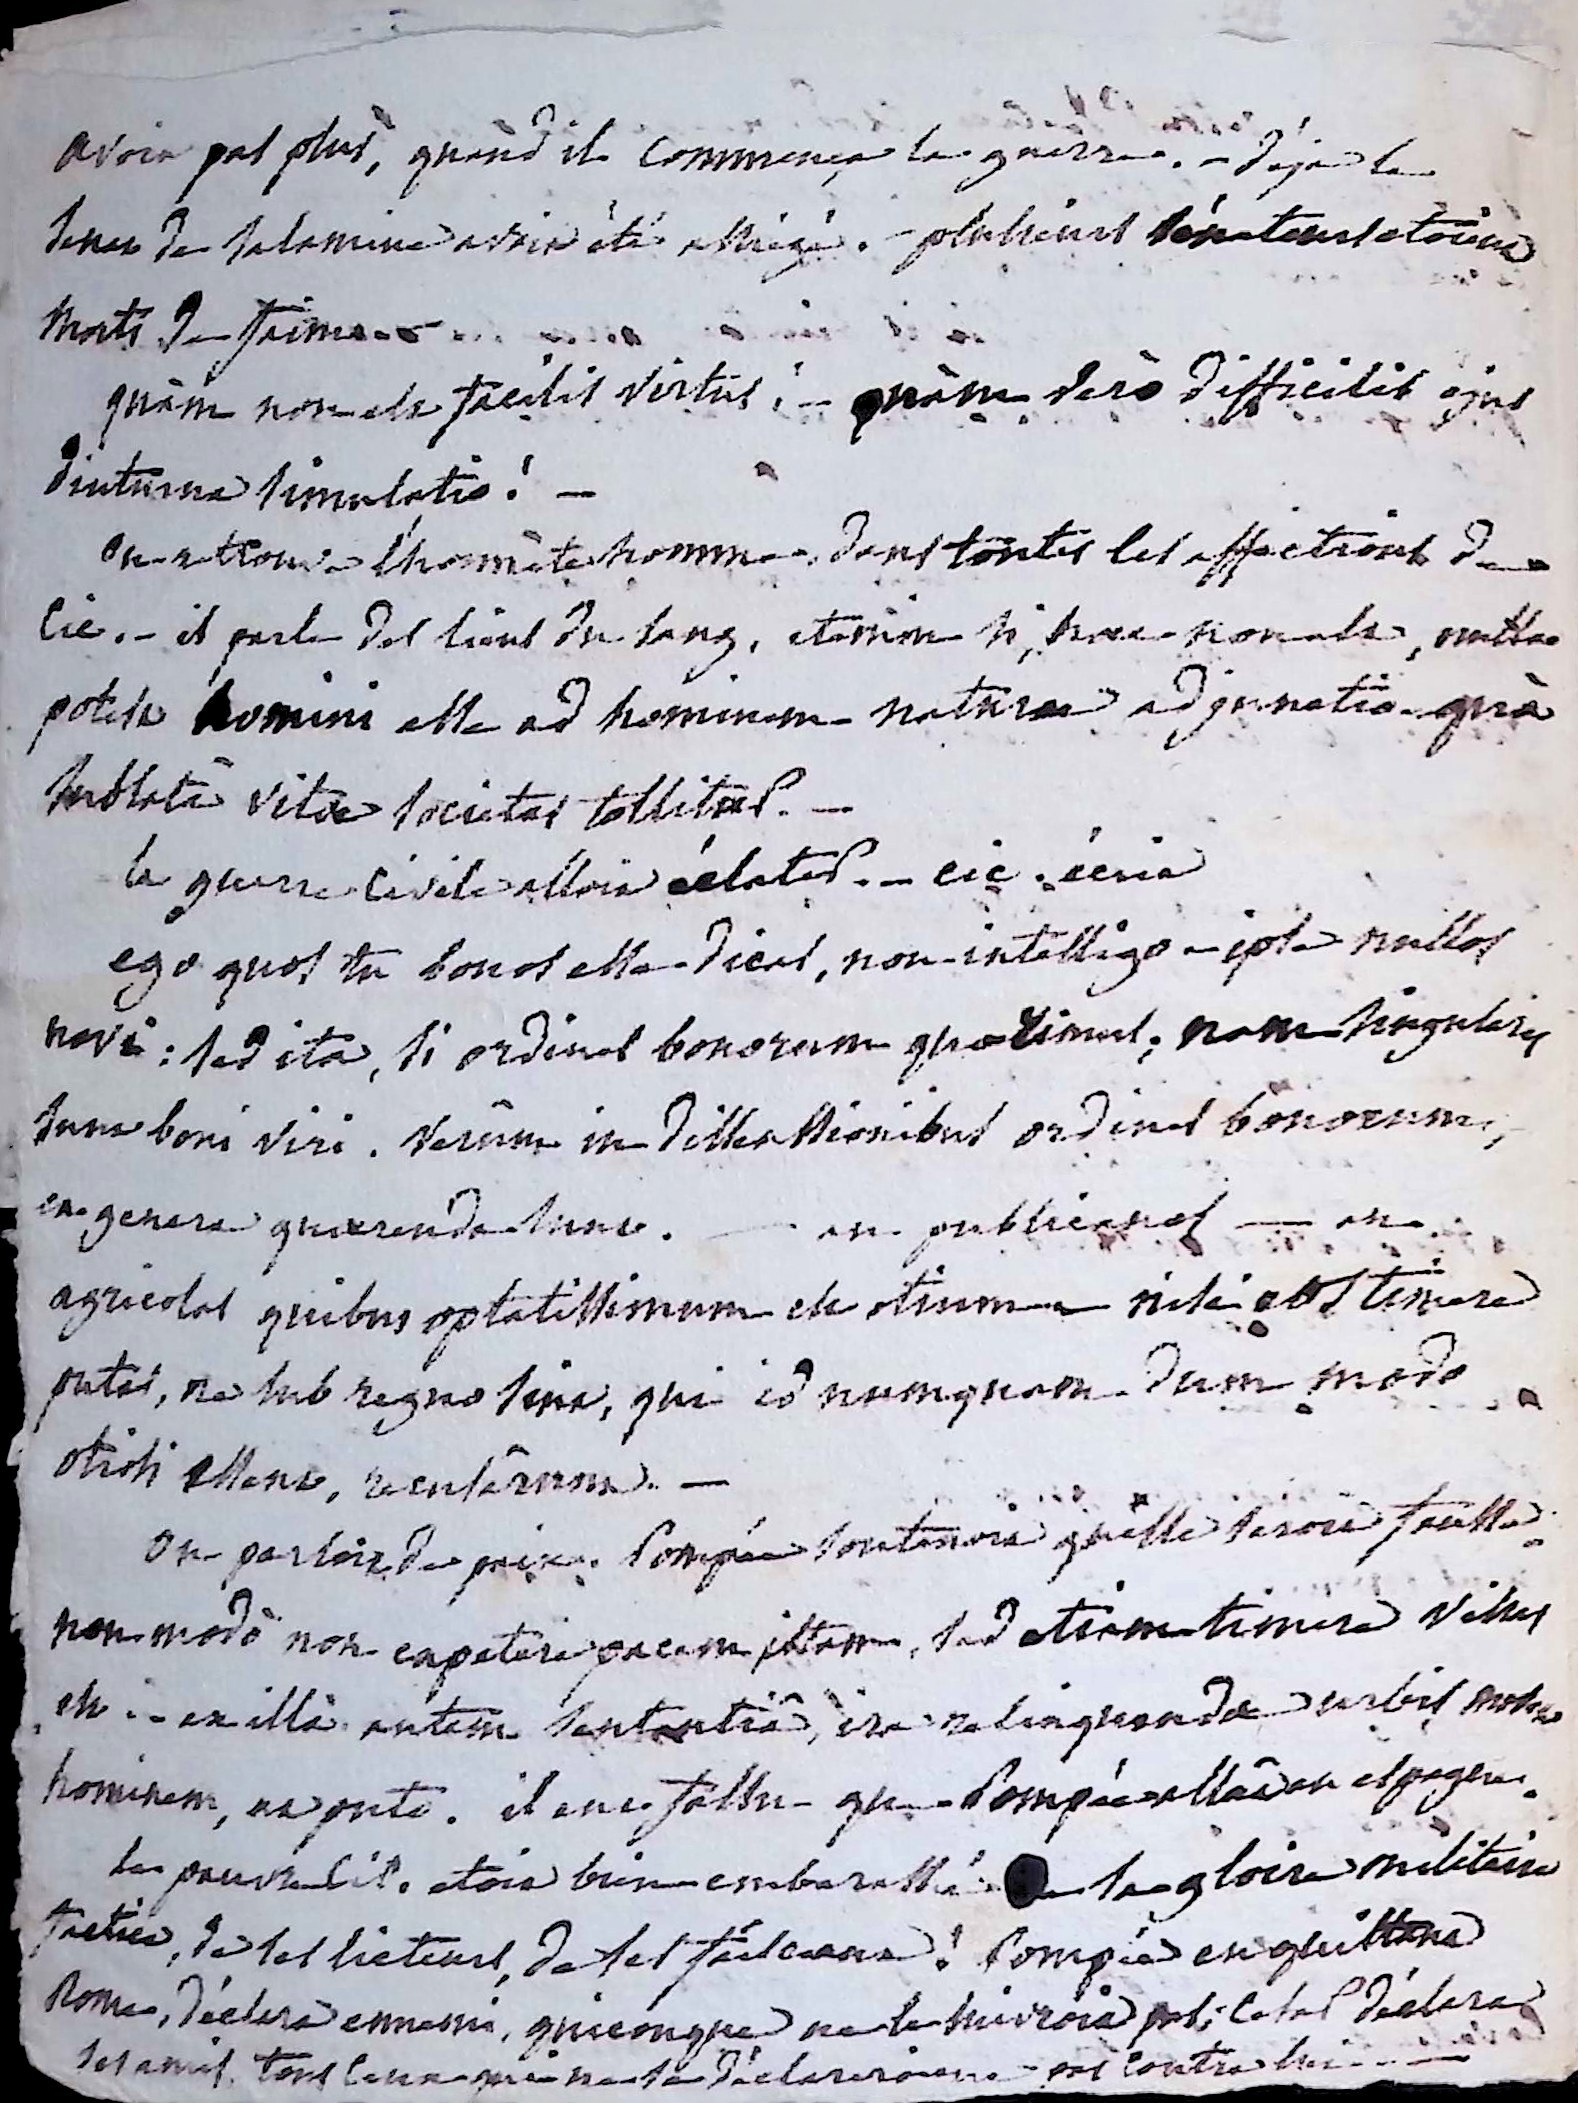 avoit pas plus, quand il commença la guerre. - Déja le
senat de Salamine avoit été assiégé. - plusieurs sénateurs etoient
morts de faim. -
quàm non est facilis virtus! - quàm verò difficilis ejus
diuturna simulatio! -
on retrouve l'honnête homme, dans toutes les affections de
Cic. - il parle des liens du sang, etenim si, haec non est, nulla
potest homini esse ad hominem naturae adjunctio quâ
sublatâ vitae societas tollitur. -
la guerre civile alloit éclater. - cic. écrit
ego quos tu bonos esse dicas, non intelligo - ipse nullos
novi: sed ita, si ordines bonorum quaerimus; nam singulares
sunt boni viri. verùm in dissessionibus ordines bonorum,
et genera quaerenda sunt. — an publicanos — an
agricolas quibus optatissimum est otium - nisi eos timere
putas, ne sub regno sint, qui id numquam dum modo
otiosi essent, recusârunt. -
on parloit de paix. Pompée soutenoit qu'elle seroit fausse:
non modò non expetere pacem istam, sed etiam timere visus
est: - ex illâ autem sententiâ, in relinquendae urbis movet
hominem, ut puto. il eut fallu que Pompée allât en espagne.
le pauvre Cic. etoit bien embarassé de sa gloire militaire
factice, de ses licteurs, de ses faisceaux! Pompée en quittant
Rome, déclara ennemi, quiconque ne le suivroit pas; César déclara
ses amis, tous ceux qui ne se déclareroient pas contre lui. —